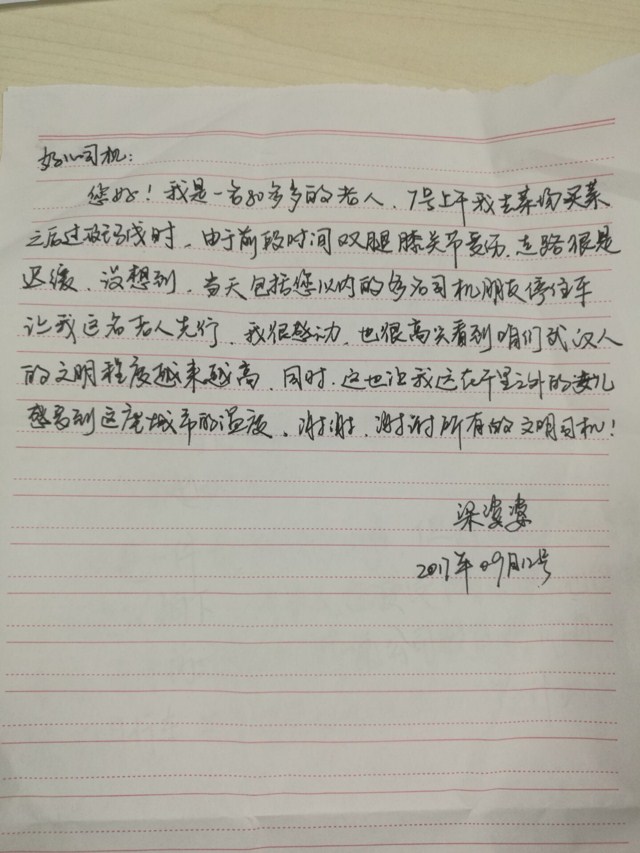 好心司机:
您好！我是一名80多岁的老人，7号上午我去菜场买菜
之后过斑马线时，由于前段时间双腿膝关节受伤，走路很是
迟缓，没想到，当天包括您以内的多名司机朋友停住车
让我这名老人先行，我很感动，也很高兴看到咱们武汉人
的文明程度越来越高，同时，这也让我这在千里之外的女儿
感受到这座城市的温度，谢谢，谢谢所有的文明司机！
梁婆婆
2017年09月12号